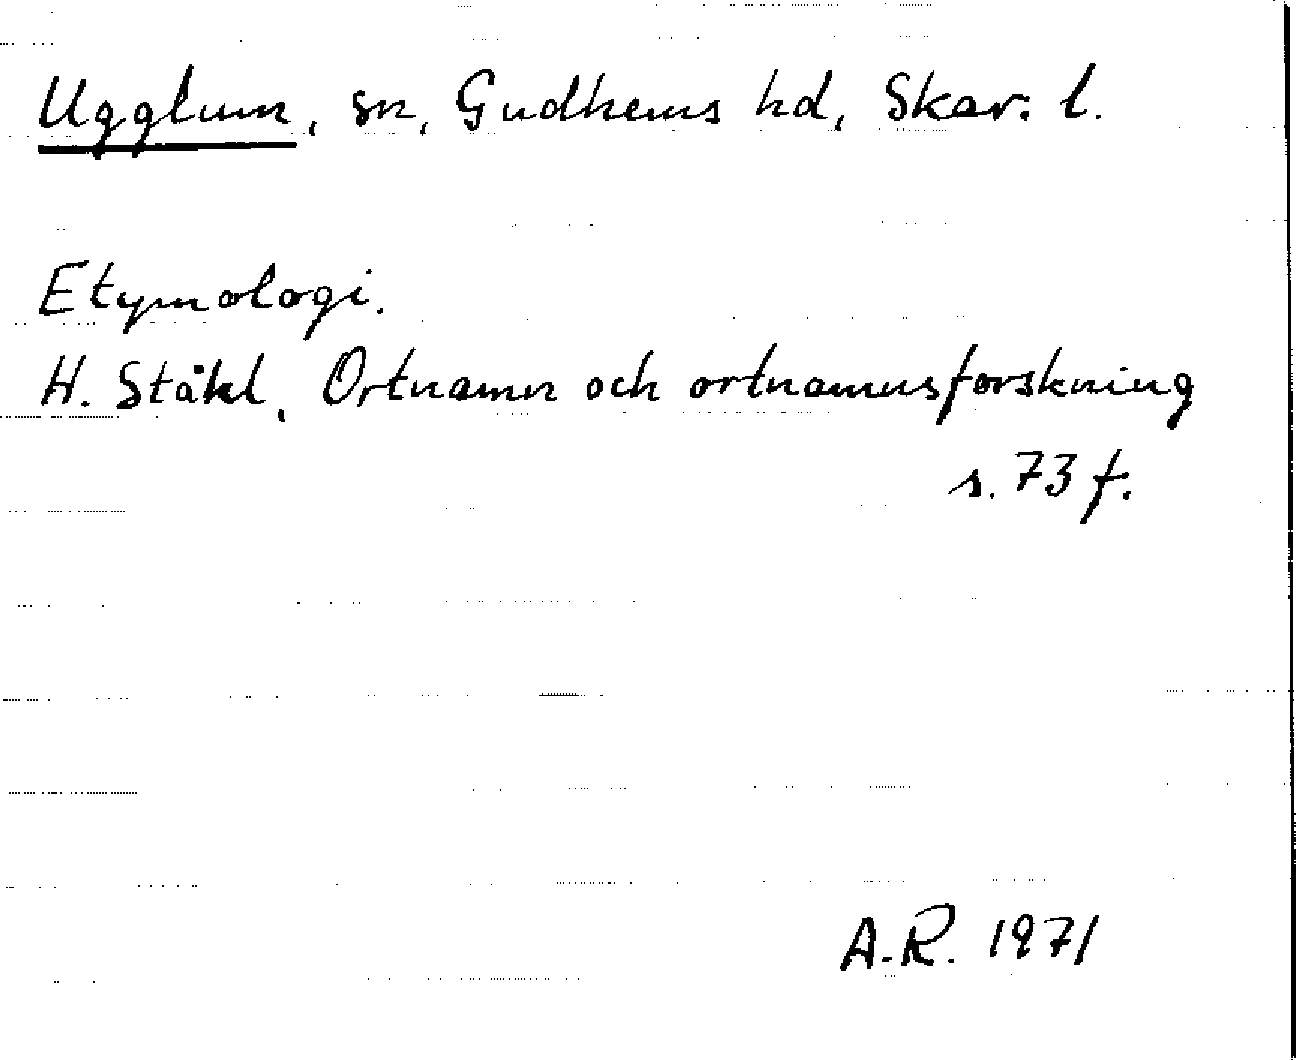 Ugglum, sn, Gudhems hd, Skar. l.
Etymologi.
H. Ståhl, Ortnamn och ortnamnsforskning
s. 73 f.
A.R. 1971